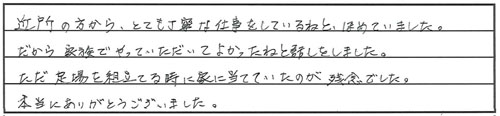 近所の方から、とても丁寧な仕事をしているねと、ほめていました。
だから家族でやっていただいてよかったねと話しをしました。
ただ足場を組立てる時に家に当てていたのが残念でした。
本当にありがとうございました。